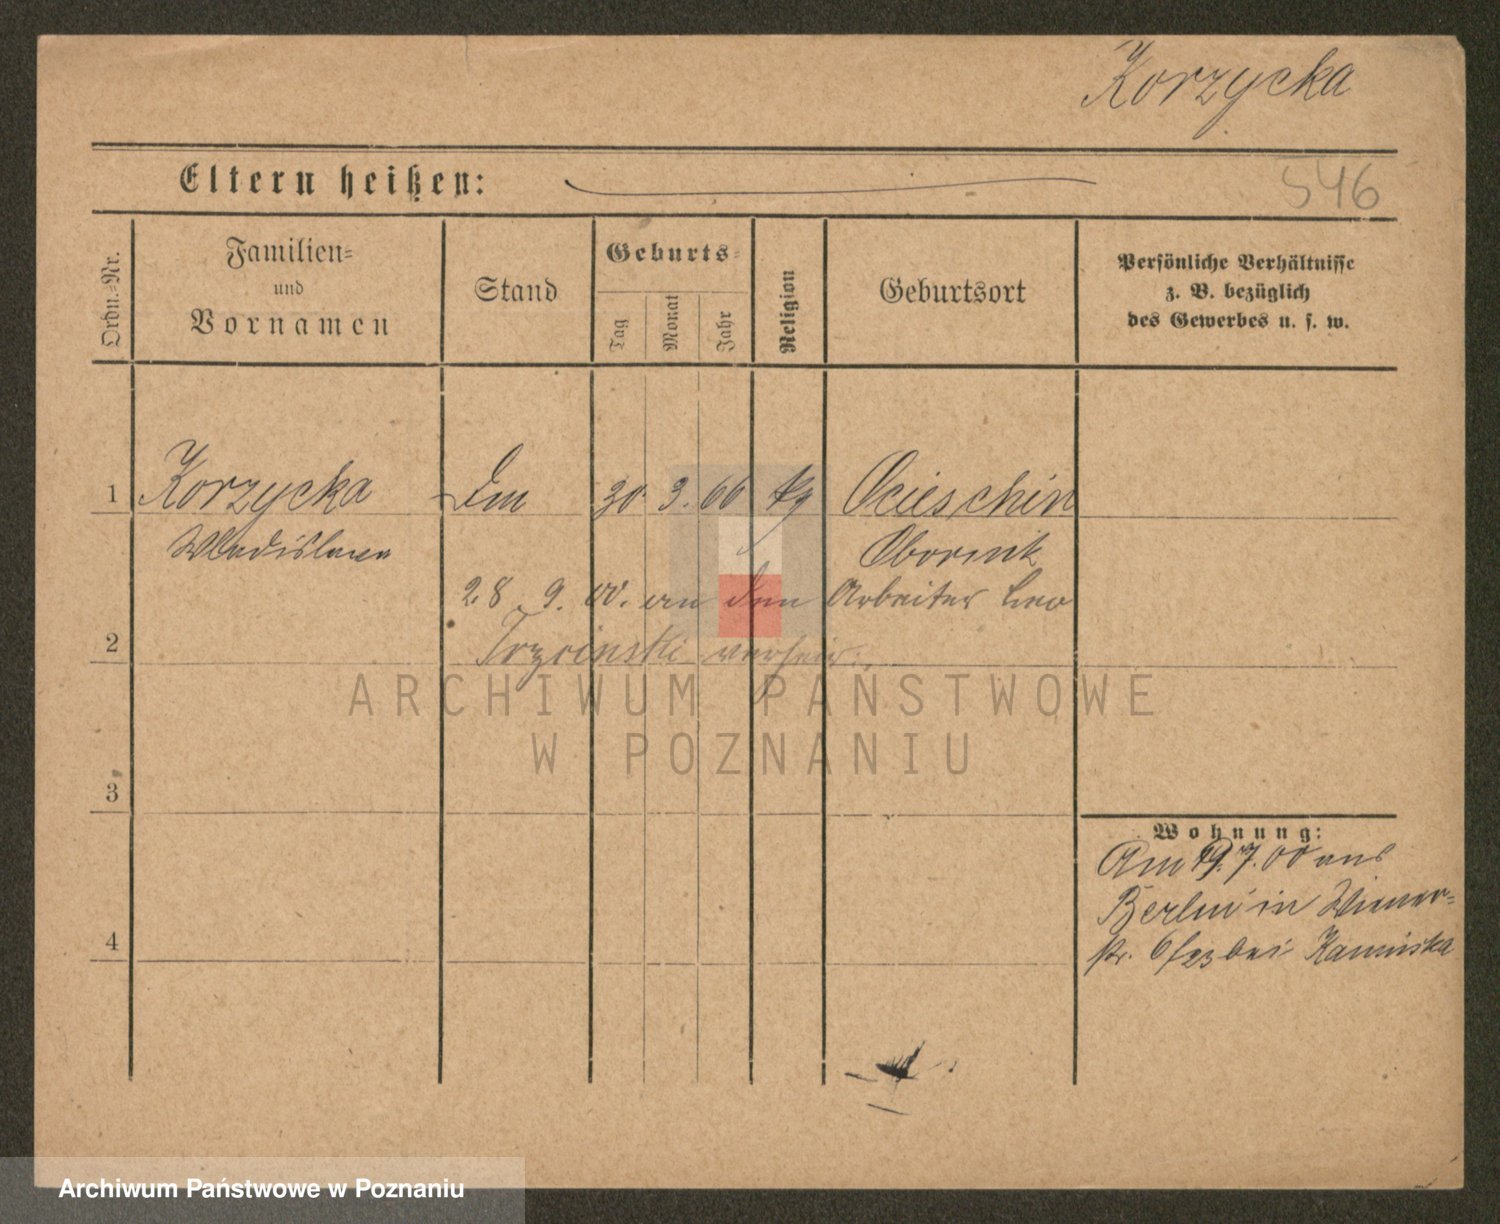 Korzycka
Eltern heißen:
546
Ordn.-Nr.
Familien-
und
Vornamen
Stand
Geburts-
Tag
Monat
Jahr
Religion
Geburtsort
Persönliche Verhältnisse
z. B. bezüglich
des Gewerbes u. s. w.
1 Korzycka 30. 3. 66 kg Ocieschin
Wladislawa Obornik
28. 9. 00. an den Arbeiter Leo
2 verheir.
ARCHIWUM PAŃSTWOWE
W POZNANIU
3
Wohnung:
Am 19. 7. 00 aus
Berlin in Wiener-
str. 6/23 bei Kaminska
4
Archiwum Państwowe w Poznaniu